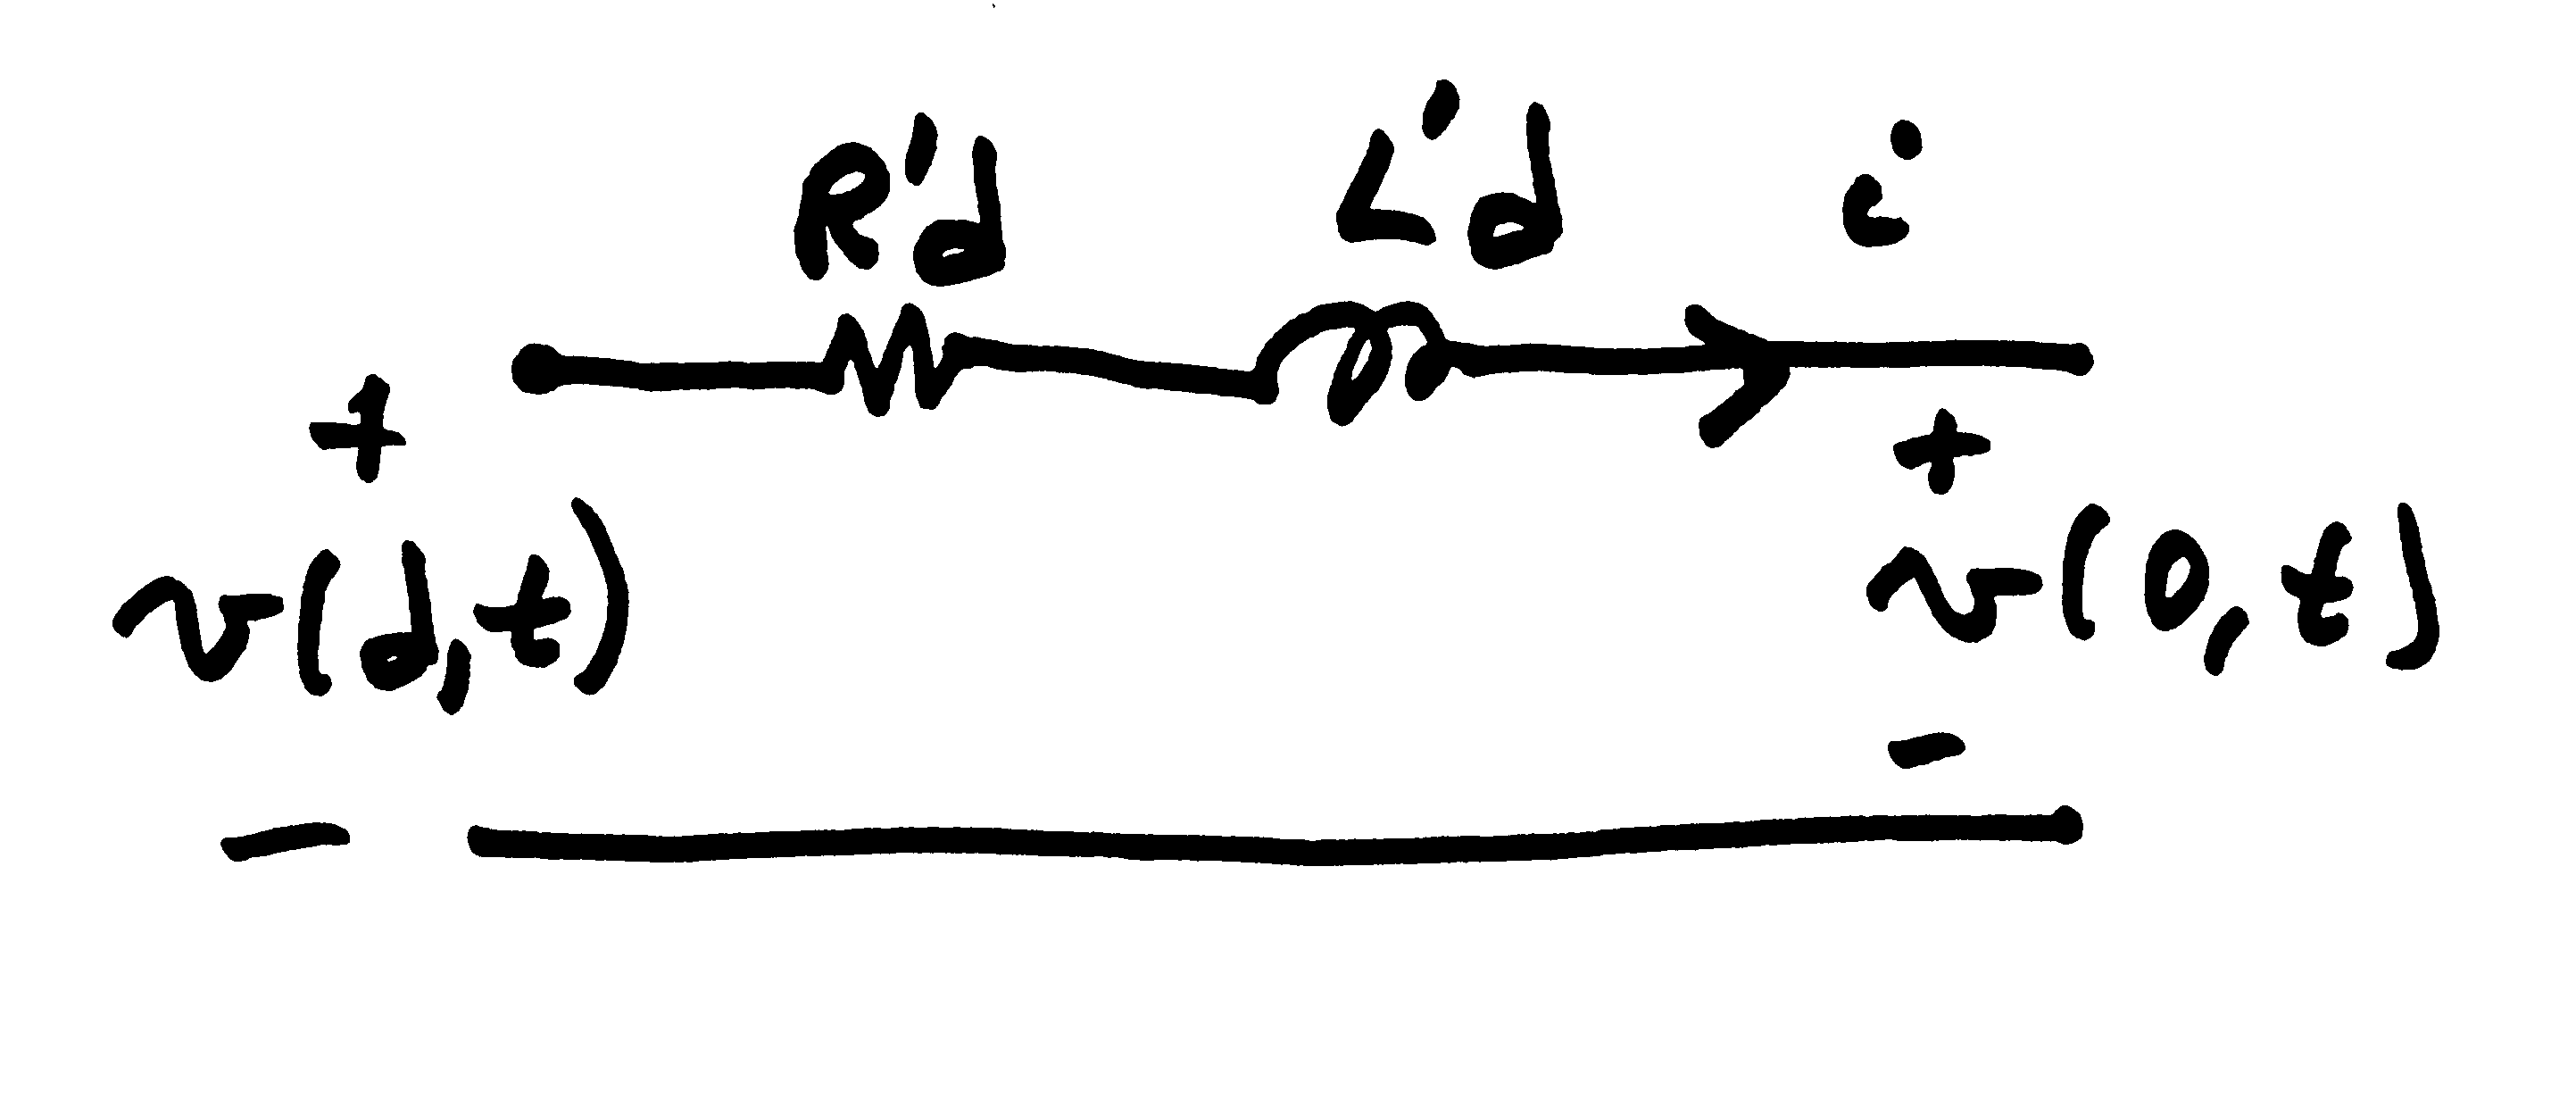 R'd L'd i
+ +
v(d,t) v(0,t)
- -